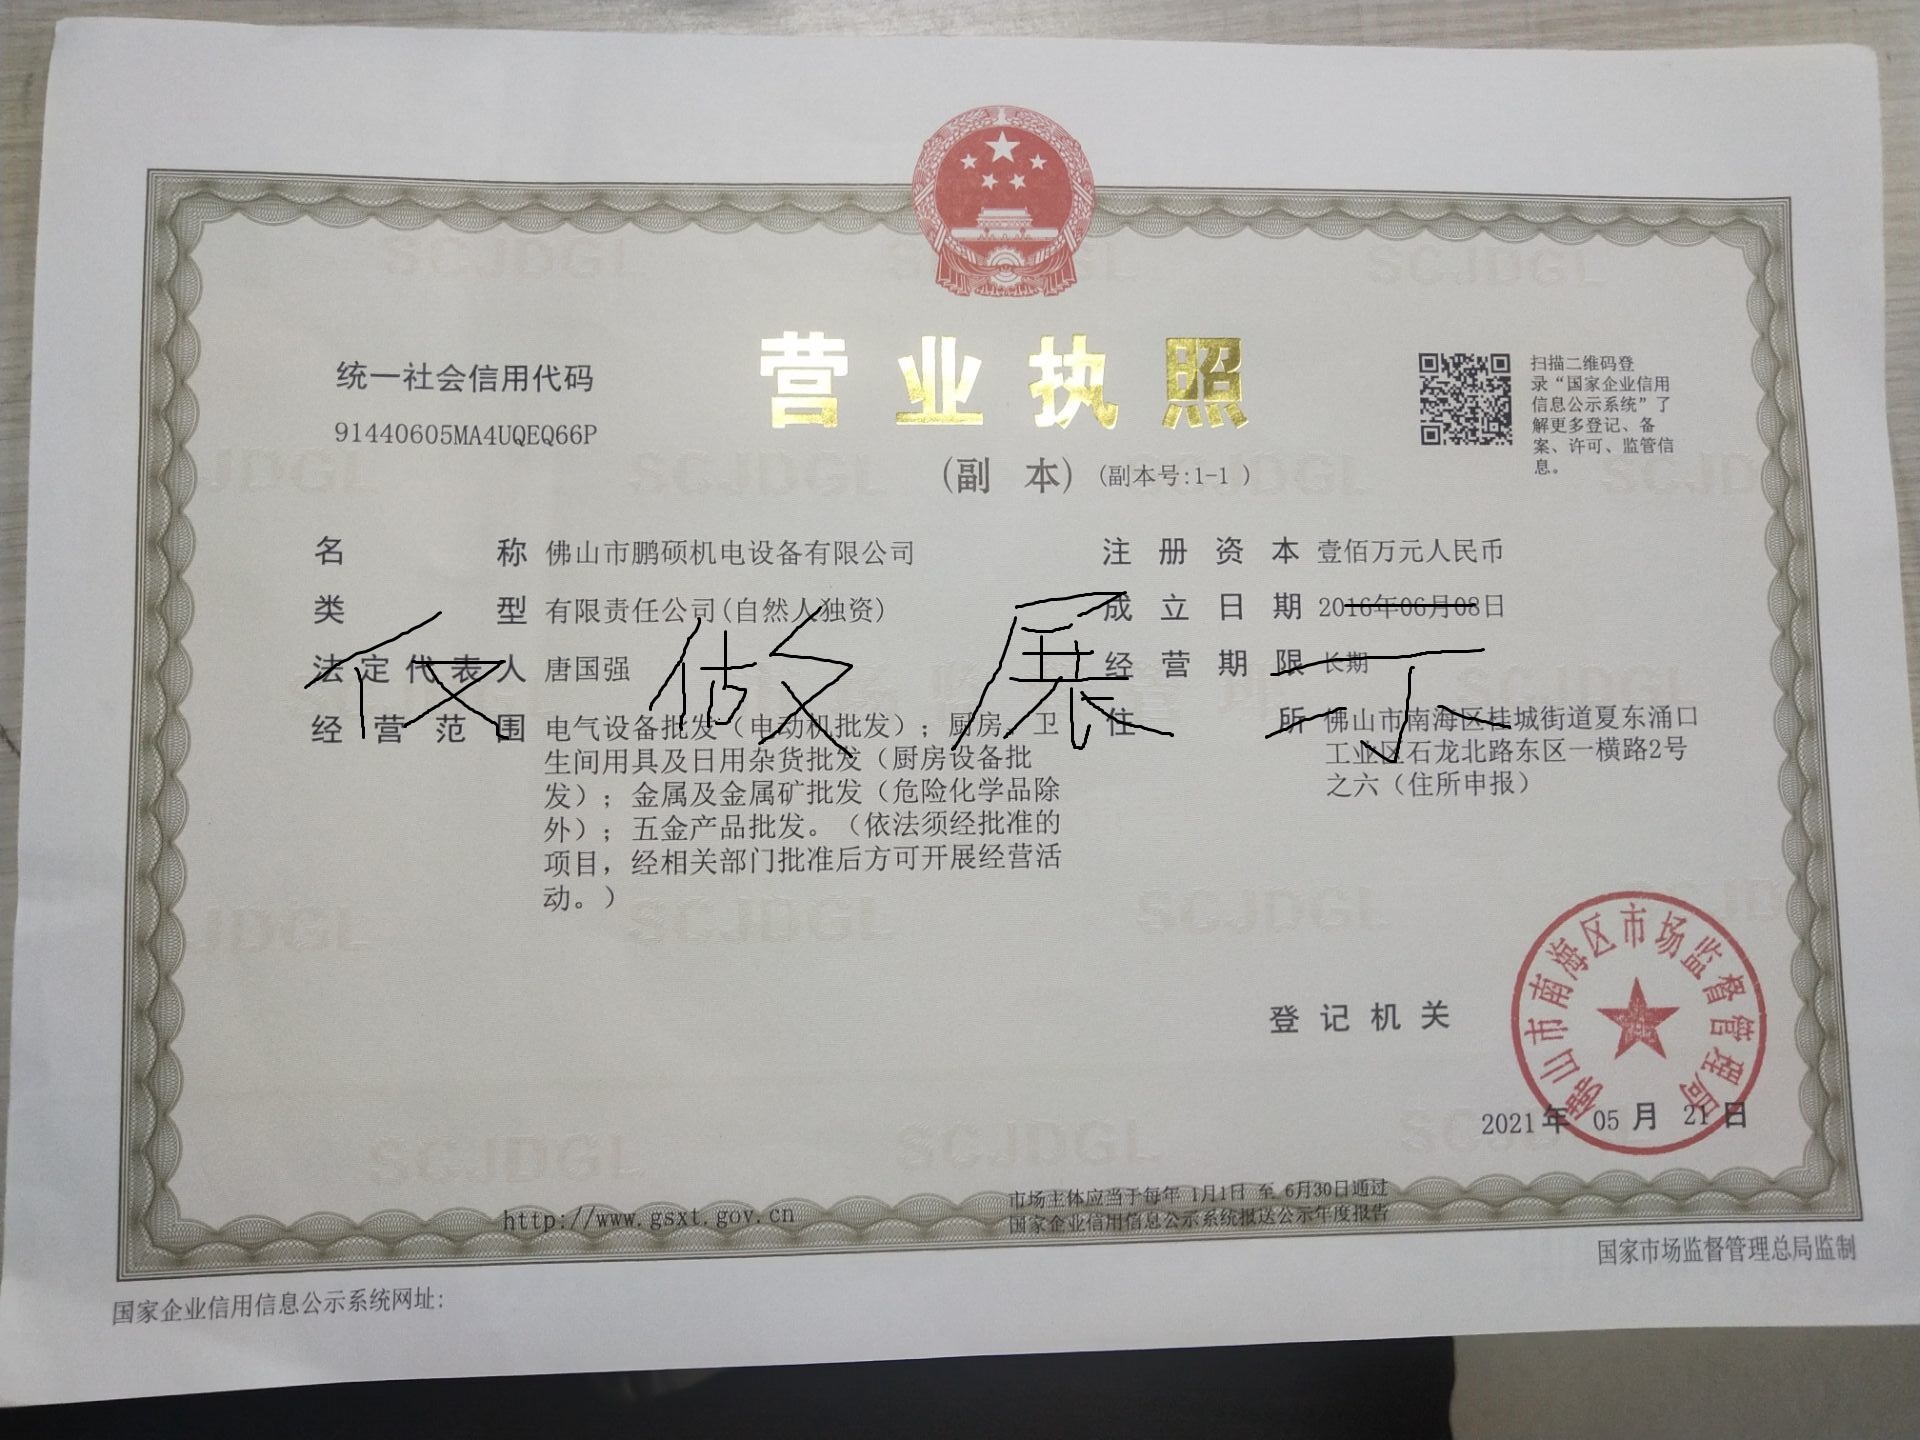 营业执照
(副 本) (副本号:1-1)
统一社会信用代码
91440605MA4UQEQ66P
扫描二维码登
录“国家企业信用
信息公示系统”了
解更多登记、备
案、许可、监管信
息。
名称 佛山市鹏硕机电设备有限公司
类型 有限责任公司(自然人独资)
法定代表人 唐国强
经营范围 电气设备批发（电动机批发）；厨房、卫
生间用具及日用杂货批发（厨房设备批
发）；金属及金属矿批发（危险化学品除
外）；五金产品批发。（依法须经批准的
项目，经相关部门批准后方可开展经营活
动。）
注册资本 壹佰万元人民币
成立日期 2016年06月08日
经营期限 长期
住所 佛山市南海区桂城街道夏东涌口
工业区石龙北路东区一横路2号
之六（住所申报）
仅做展示
登记机关
佛山市南海区市场监督管理局
2021 年 05 月 21 日
http://www.gsxt.gov.cn
市场主体应当于每年 1月1日 至 6月30日通过
国家企业信用信息公示系统报送公示年度报告
国家企业信用信息公示系统网址:
国家市场监督管理总局监制
SCJDGL